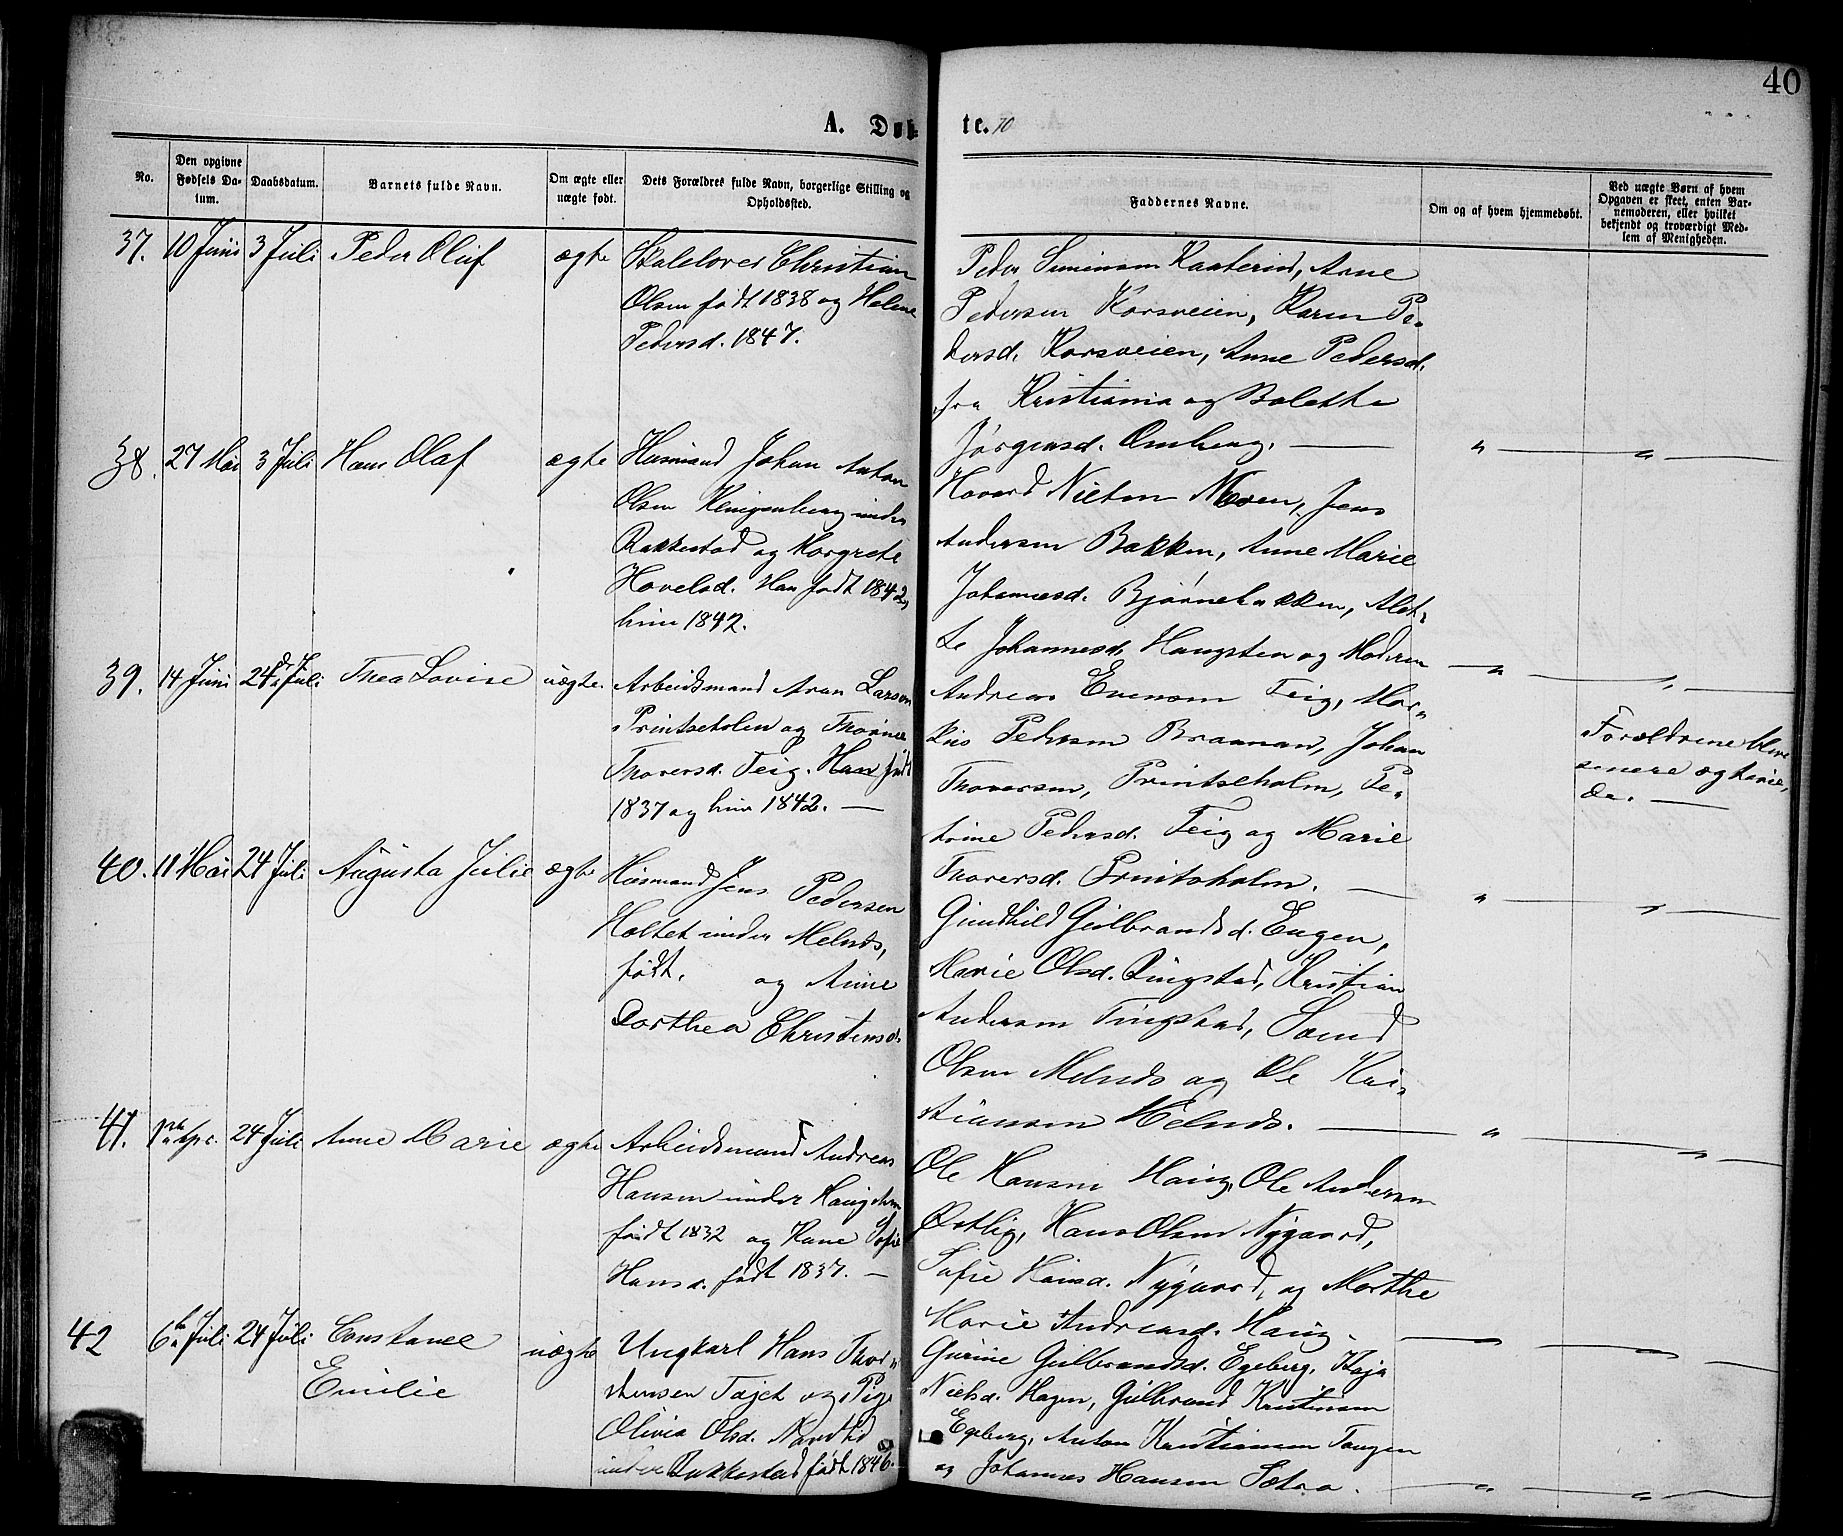 40
A. Døb-
te. 70
No.
Den opgivne
Fødsels Da-
tum.
Daabsdatum.
Barnets fulde Navn.
Om ægte eller
uægte født.
Dets Forældres fulde Navn, borgerlige Stilling og
Opholdssted.
Faddernes Navne.
Om og af hvem hjemmedøbt.
Ved uægte Børn af hvem
Opgaven er skeet, enten Bar-
nemoderen, eller hvilket
bekjendt og troværdigt Med-
lem af Menigheden.
37. 10 Juni 3 Juli Peder Oluf ægte
Christian
Olsen født 1838 og Helene
Pedersd. 1847.
Peder Simensen Arne
Pedersen Korsveien, Karen Pe-
dersd. Korsveien, Anne Pedersd.
fra Kristiania og Bolette
Jørgensd. Omberg. — " — " —
38. 27 Mai 3 Juli Hans Olaf ægte
Husmand Johan Anton
Olsen Klingenberg under
Rakkestad og Margrete
Hovelsd. Han født 1842,
hun 1842.
Havard Nielsen Moen, Jens
Andersen Bakken, Anne Marie
Johannesd. Bjørnebakken, Alet-
te Johannesd. Haugsten og Moderen — " — " —
39. 14 Juni 24d Juli Thea Lovise uægte
Arbeidsmand Aron Larsen
Printseholen og Thorine
Thorersd. Teig. Han født
1837 og hun 1842. —
Andreas Evensen Teig, Mar-
kus Pedersen Braanan, Johan
Thoversen, Printseholm, Pe-
trine Pedersd. Teig og Marie
Thorersd. Printsholm. — " — " —
Forældrene bleve
senere ægtevie-
de. —
40. 11 Mai 24 Juli Augusta Julie ægte
Husmand Jens Pedersen
Holtet under Melnds,
født. og Anne
Dorthea Christensd.
Gundhild Gulbrandsd. Eugen,
Marie Olsd. Ringstad, Kristian
Andersen Tingstad,
Olsen Melnds og Ole Kri-
stiansen Melnds. — " — " —
41. 1 Apr. 24 Juli Anne Marie ægte
Arbeidsmand Andreas
Hansen under Haugsten
født 1832 og Hane Sofie
Hansd. født 1837. —
Ole Hansen Haug, Ole Andersen
Østlig, Hans Olsen Nygaard,
Sofie Hansd. Nygaard, og Marthe
Marie Andreasd. Haug. — " — " —
42 6te Juli 24 Juli Constance
Emilie
uægte
Ungkarl Hans Thor-
stensen Tajet og Pige
Olivia Olsd. Nordbd
under Rakkestad født 1846.
Gurine Gulbrandsd. Egeberg, Kaja
Nielsd. Hagen, Gulbrand Kristiansen
Egeberg, Anton Kristiansen Tangen
og Johannes Hansen Sætra. — " — " —